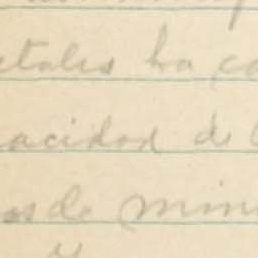 etales ha co
acidad de l
os de mine
y